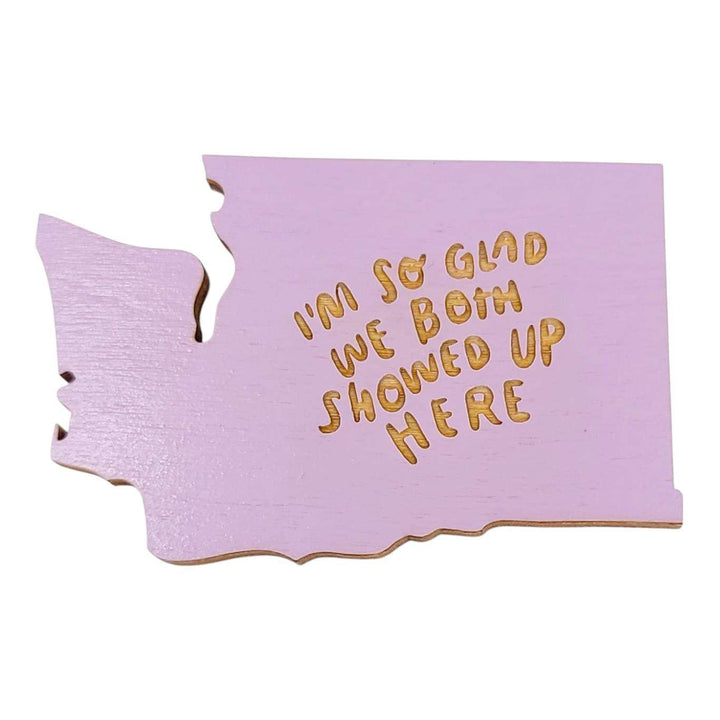 I'M SO GLAD
WE BOTH
SHOWED UP
HERE